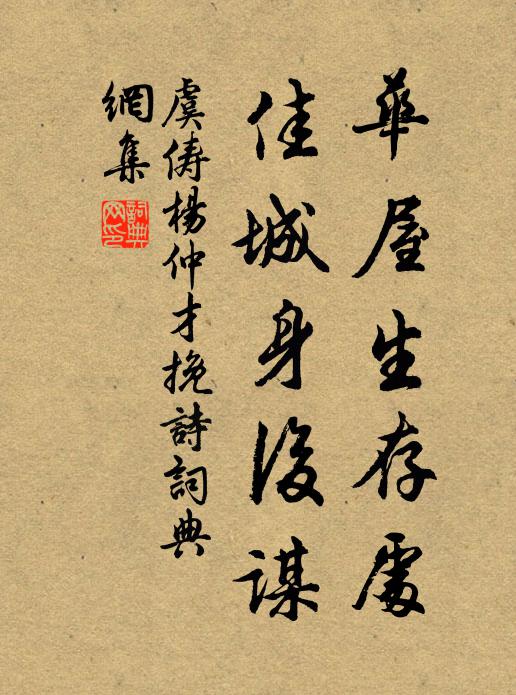 華屋生存處
佳城身後謀
虞儔楊仲才挽詩詞典
網集
詞典
网印